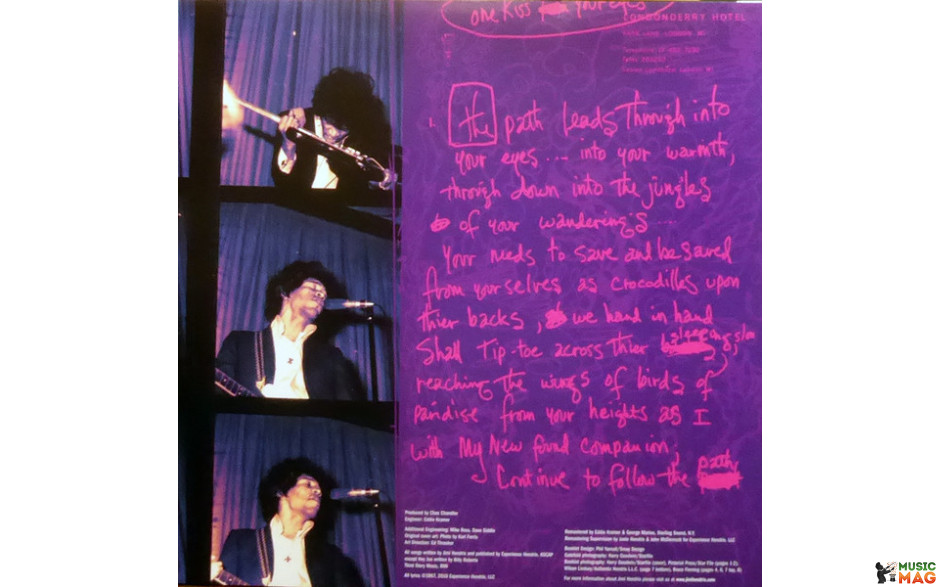 one Kiss your eyes
LONDONDERRY HOTEL
1. the path leads Through into
your eyes.... into your warmth,
through down into the jungles
of your wandering's.....
Your needs to save and be saved
from yourselves as crocodiles upon
thier backs, we hand in hand
Shall Tip-toe across thier sleeping
reaching the wings of birds of
paridise from your heights as I
with My New found Companion,
Continue to follow the path
Produced by Chas Chandler
Engineer: Eddie Kramer
Additional Engineering: Mike Ross, Dave Siddle
Original cover art: Photo by Karl Ferris
Art Direction: Ed Thrasher
All songs written by Jimi Hendrix and published by Experience Hendrix, ASCAP
except Hey Joe written by Billy Roberts
Third Story Music, BMI
Experience Hendrix, LLC
Remastered by Eddie Kramer & George Marino, Sterling Sound, N.Y.
Remastering Supervision by Janie Hendrix & John McDermott for Experience Hendrix, LLC
For more information about Jimi Hendrix please visit us at www.jimihendrix.com
MUSIC
MAG